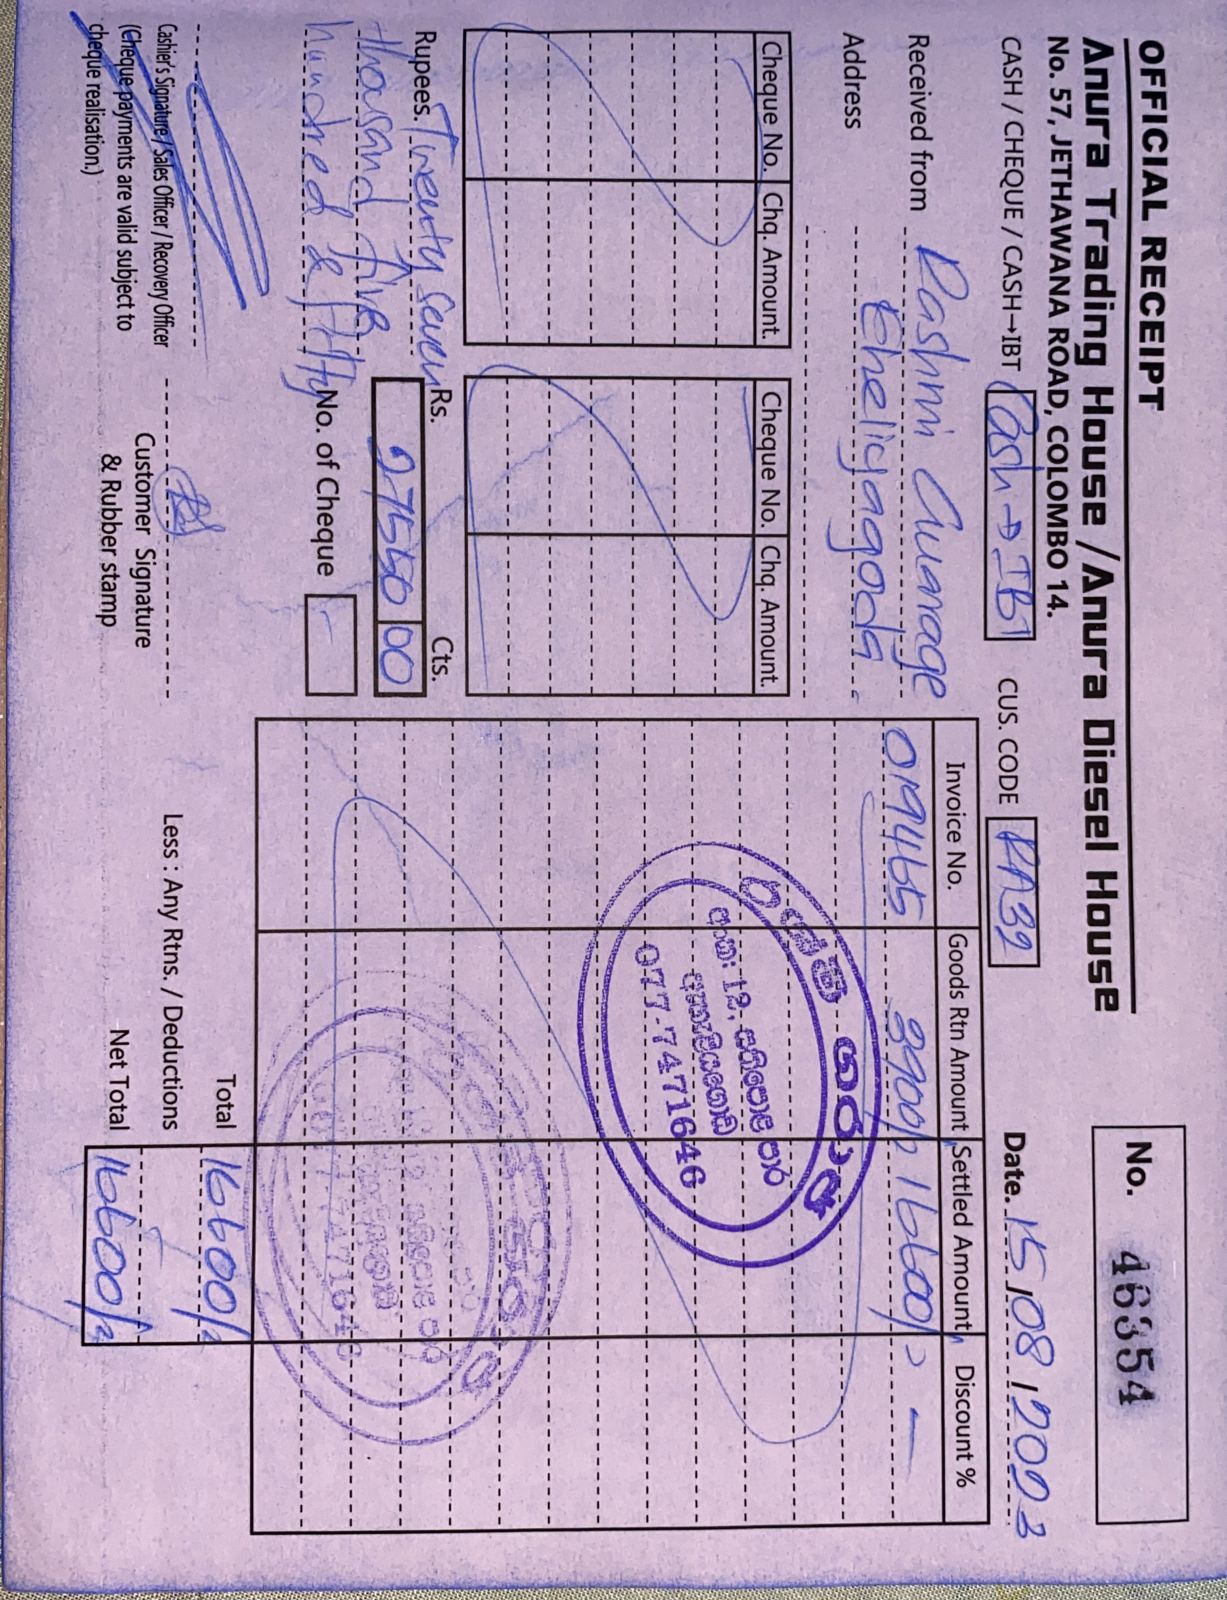 OFFICIAL RECEIPT
No. 46354
Anura Trading House / Anura Diesel House
No. 57, JETHAWANA ROAD, COLOMBO 14.
CASH / CHEQUE / CASH→IBT Cash → IBT CUS. CODE RA39 Date. 15/08/2023
Received from Rashmi Gamage
Address Eheliyagoda.
Cheque No. Chq. Amount. Cheque No. Chq. Amount.
Rupees. Twenty Seven
thousand five
hundred & fifty
Rs. Cts.
27550 00
No. of Cheque -
Cashier's Signature / Sales Officer / Recovery Officer
(Cheque payments are valid subject to
cheque realisation.)
Customer Signature
& Rubber stamp
Invoice No. Goods Rtn Amount Settled Amount Discount %
019465 16600/= —
අංක: 12,
077-7471646
Total 16600/=
Less : Any Rtns. / Deductions
Net Total 16600/=
7471646